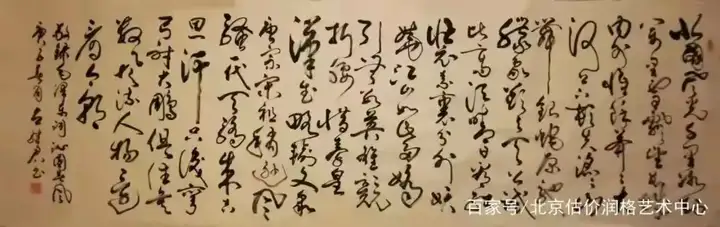 北国风光千里冰封
万里雪飘望长城
内外惟余莽莽大
河上下顿失滔滔山
舞银蛇原驰
蜡象欲与天公试
比高须晴日看红
装素裹分外妖
娆江山如此多娇
引无数英雄竞
折腰惜秦皇
汉武略输文采
唐宗宋祖稍逊风
骚一代天骄成吉
思汗只识弯
弓射大雕俱往矣
数风流人物还
看今朝
敬录毛泽东词沁园春雪
庚子春月
百家号/北京估价润格艺术中心